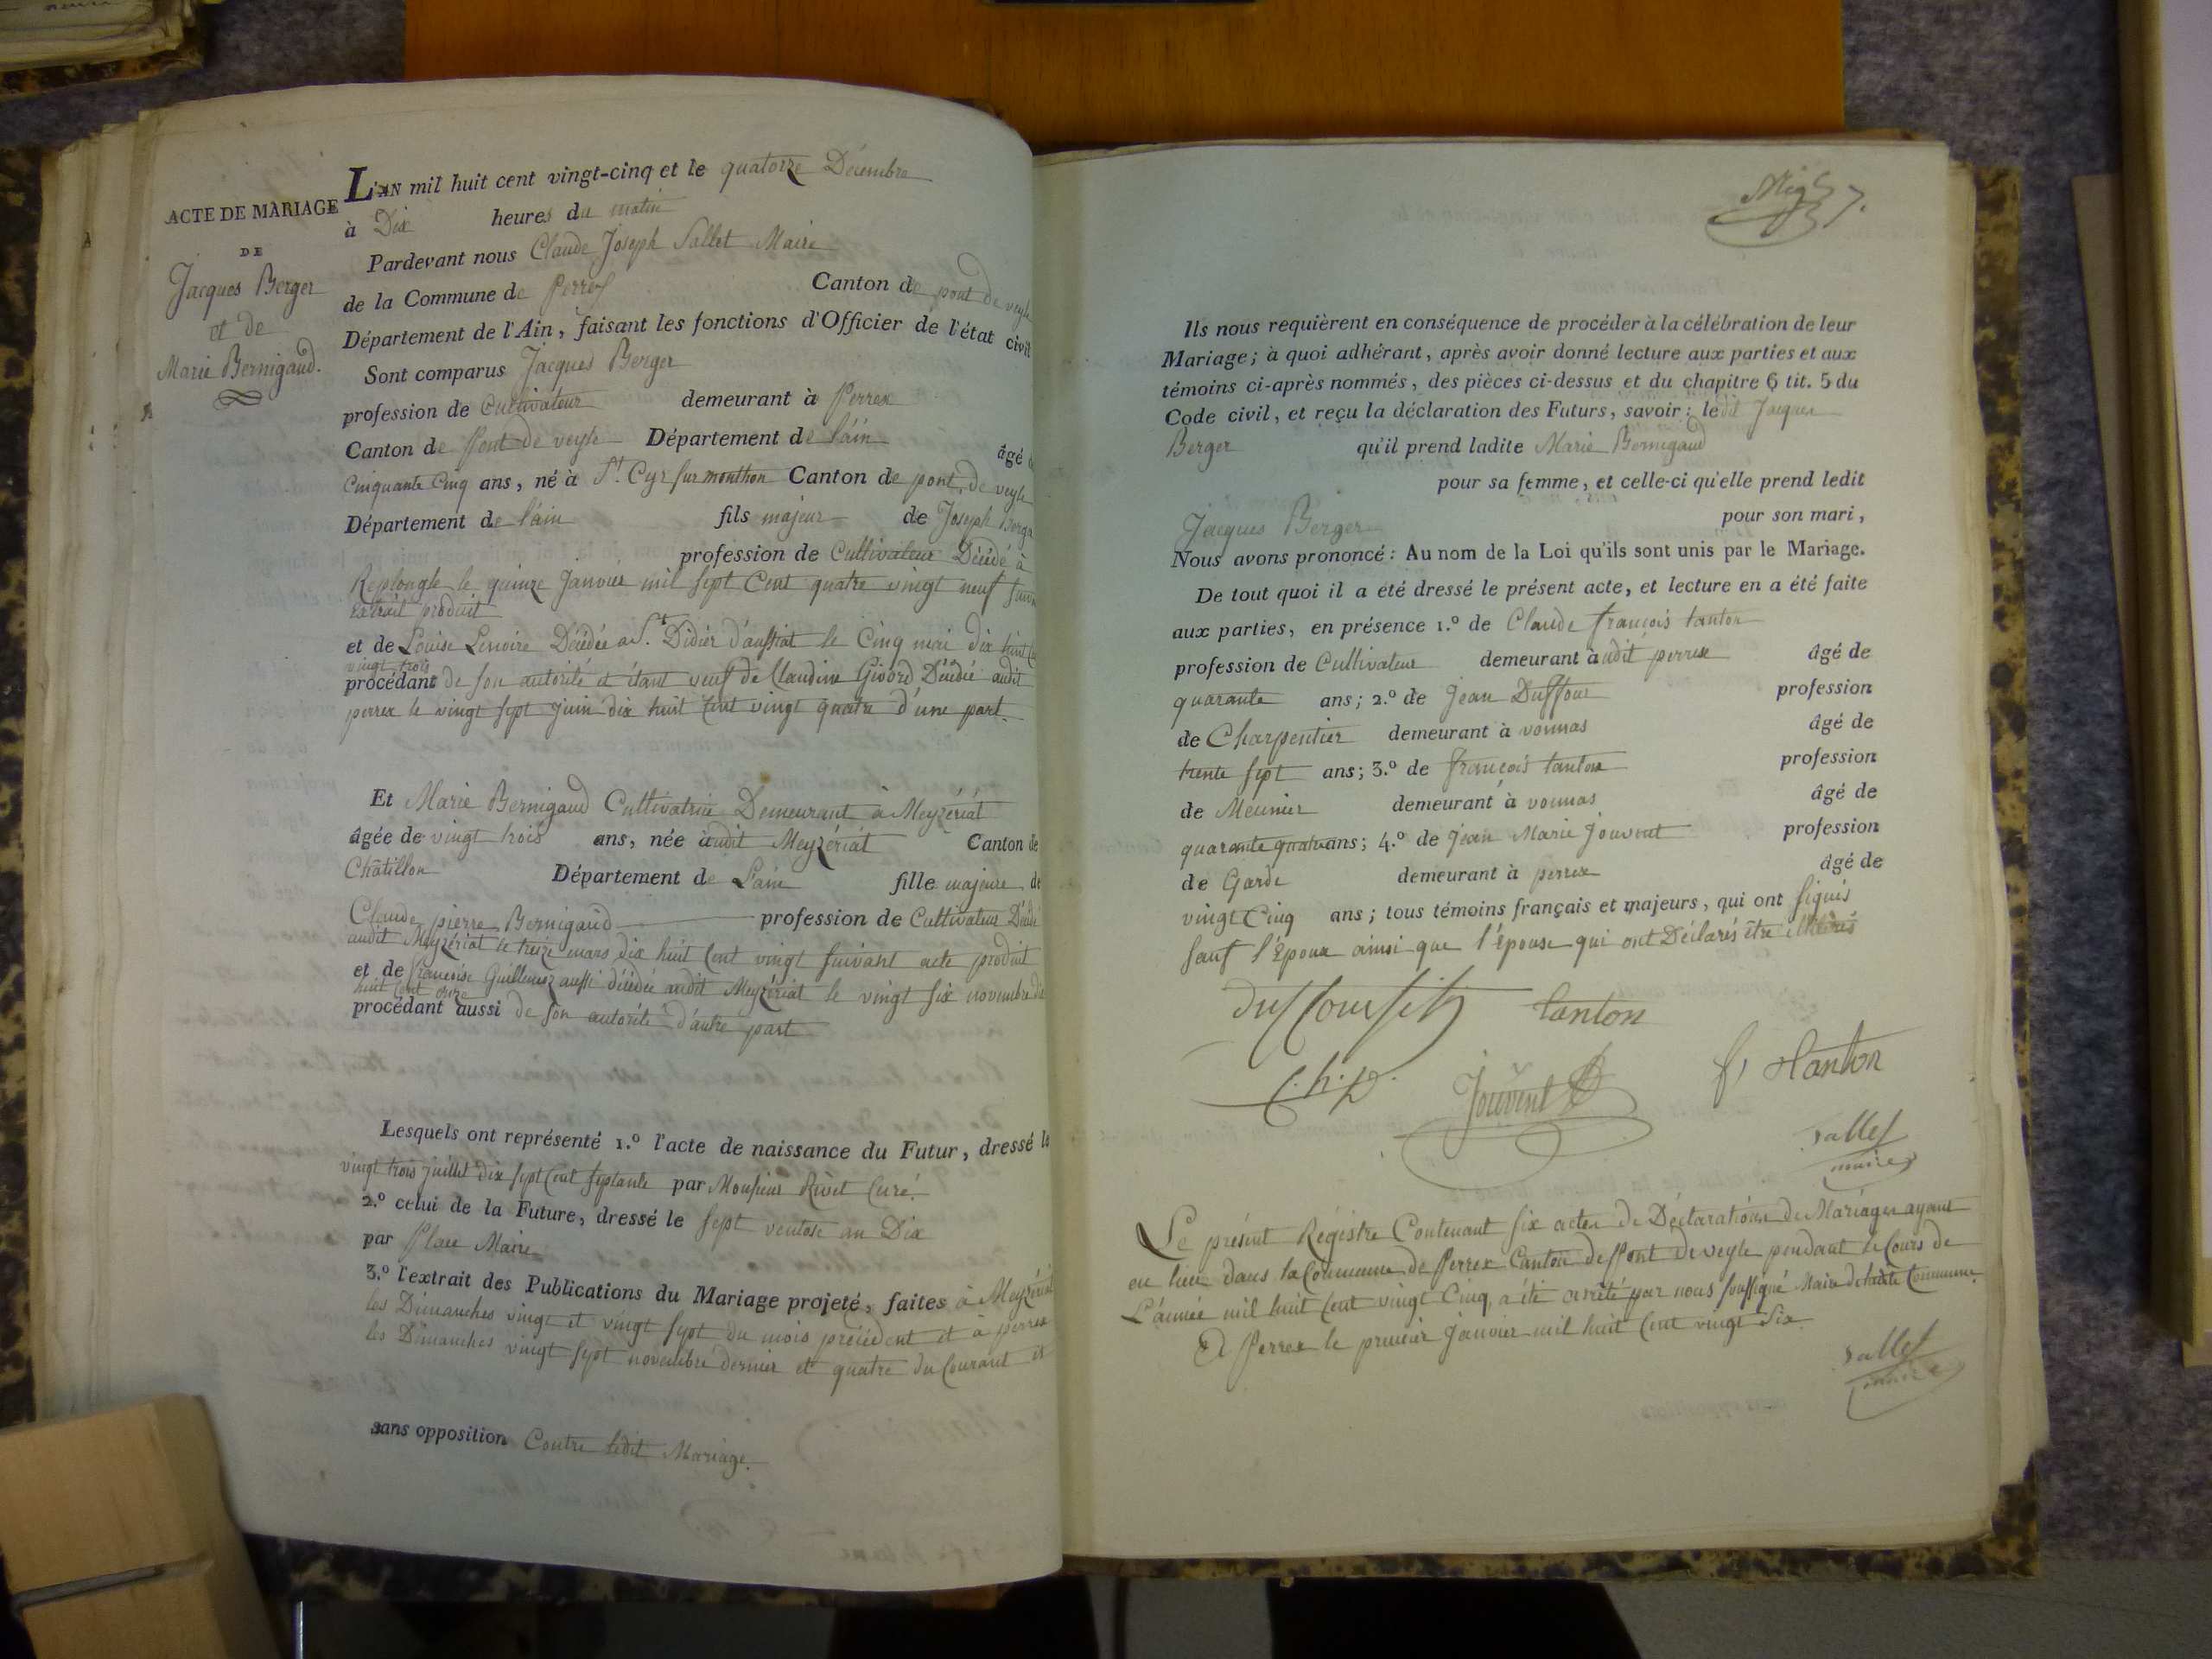 ACTE DE MARIAGE
DE
Jacques Berger
et de
Marie Bernigaud.
L'AN mil huit cent vingt-cinq et le quatorze Décembre
à Dix heures du matin
Pardevant nous Claude Joseph Sallet Maire
de la Commune de Perrex Canton de pont de veyle
Département de l'Ain, faisant les fonctions d'Officier de l'état civil
Sont comparus Jacques Berger
profession de Cultivateur demeurant à Perrex
Canton de Pont de veyle Département de l'ain âgé de
Cinquante Cinq ans, né à St. Cyr sur monthon Canton de pont de veyle
Département de l'ain fils majeur de Joseph Berger
profession de Cultivateur Décédé à
Replongle le quinze Janvier mil sept Cent quatre vingt neuf suivt
extrait produit
et de Louise Lenoire Décédée a St. Didier d'aussiat le Cinq mai dix huit Ct
vingt trois
procédant de son autorité et étant veuf de Claudine Givord Décédée audit
perrex le vingt sept juin dix huit Cent vingt quatre d'une part.
Et Marie Bernigaud Cultivatrice Demeurant à Meyzériat
âgée de vingt trois ans, née audit Meyzériat Canton de
Châtillon Département de L'ain fille majeure de
Claude pierre Bernigaud profession de Cultivateur Décédé
audit Meyzériat le treize mars dix huit Cent vingt suivant acte produit
et de françoise Guillemoz aussi décédée audit Meyzériat le vingt six novembre dix
huit Cent onze
procédant aussi de son autorité d'autre part
Lesquels ont représenté 1.º l'acte de naissance du Futur, dressé le
vingt trois juillet dix sept Cent septante par Monsieur Rivet Curé.
2.º celui de la Future, dressé le sept ventose an Dix
par Place Maire
3.º l'extrait des Publications du Mariage projeté, faites à Meyzériat
les Dimanches vingt et vingt sept du mois précédent et à perrex
les Dimanches vingt sept novembre dernier et quatre du Courant et
sans opposition Contre ledit Mariage.
7.
Ils nous requièrent en conséquence de procéder à la célébration de leur
Mariage; à quoi adhérant, après avoir donné lecture aux parties et aux
témoins ci-après nommés, des pièces ci-dessus et du chapitre 6 tit. 5 du
Code civil, et reçu la déclaration des Futurs, savoir: ledit Jacques
Berger qu'il prend ladite Marie Bernigaud
pour sa femme, et celle-ci qu'elle prend ledit
Jacques Berger pour son mari,
Nous avons prononcé: Au nom de la Loi qu'ils sont unis par le Mariage.
De tout quoi il a été dressé le présent acte, et lecture en a été faite
aux parties, en présence 1.º de Claude françois tanton
profession de Cultivateur demeurant audit perrex âgé de
quarante ans; 2.º de Jean Duffour profession
de Charpentier demeurant à vonnas âgé de
trente sept ans; 3.º de françois tanton profession
de Meunier demeurant à vonnas âgé de
quarante quatre ans; 4.º de Jean Marie Jouvent profession
de Garde demeurant à perrex âgé de
vingt Cinq ans; tous témoins français et majeurs, qui ont signés
sauf l'Epoux ainsi que l'épouse qui ont Déclarés être illitérés
tanton
Jouvent
f tanton
Sallet
maire
Le présent Régistre Contenant six actes de Déclarations de Mariages ayant
eu lieu dans la Commune de Perrex Canton de Pont de veyle pendant le Cours de
L'année mil huit Cent vingt Cinq, a été arrêté par nous soussigné Maire de ladite Commune.
A Perrex le premier Janvier mil huit Cent vingt Six.
Sallet
maire